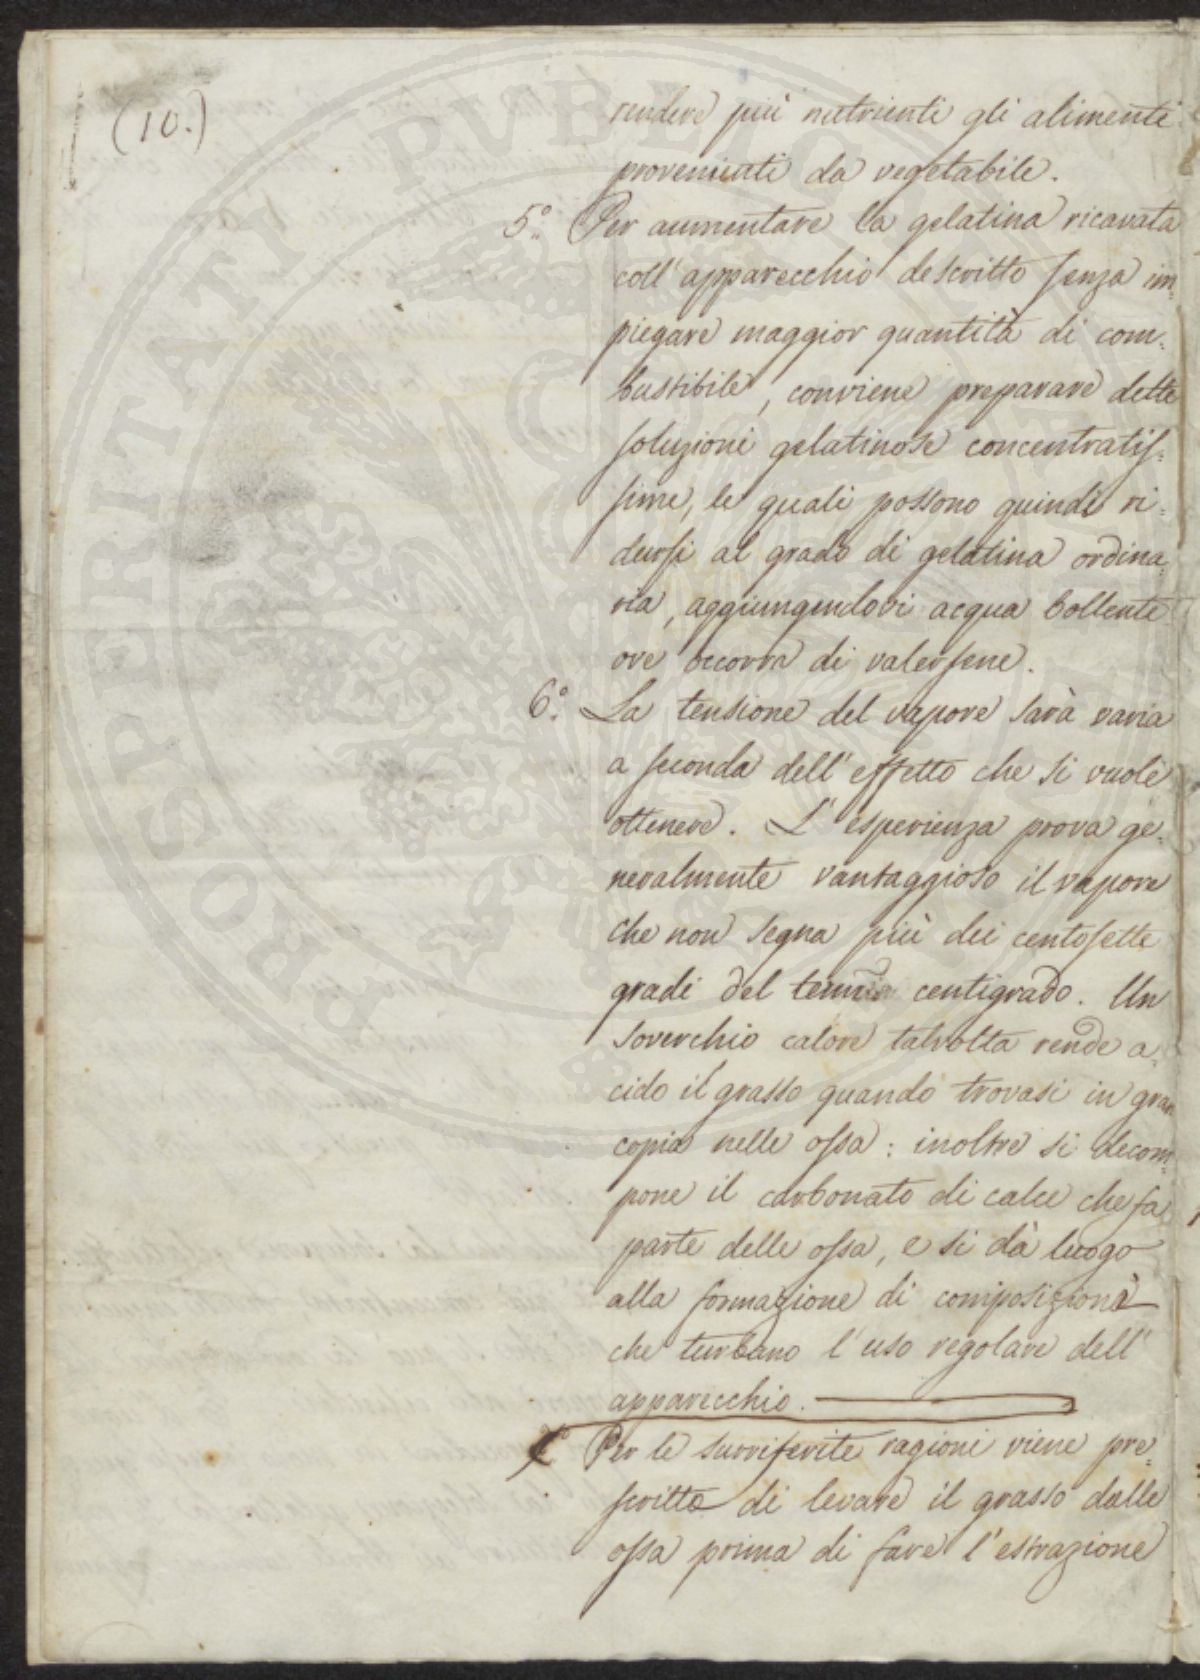 (10.)
rendere più nutrienti gli alimenti
provenienti da vegetabile.
5.° Per aumentare la gelatina ricavata
coll'apparecchio descritto senza im=
piegare maggior quantità di com=
bustibile, conviene preparare dette
soluzioni gelatinose concentratis=
sime, le quali possono quindi ri=
dursi al grado di gelatina ordina=
ria, aggiungendovi acqua bollente
ove occorra di valersene.
6.° La tensione del vapore sarà varia
a seconda dell'effetto che si vuole
ottenere. L'esperienza prova ge=
neralmente vantaggioso il vapore
che non segna più dei centosette
gradi del centigrado. Un
soverchio calore talvolta rende a=
cido il grasso quando trovasi in gran
copia nelle ossa: inoltre si decom=
pone il carbonato di calce che fa
parte delle ossa, e si dà luogo
alla formazione di composizioni
che turbano l'uso regolare dell'
apparecchio.
Per le surriferite ragioni viene pre=
scritto di levare il grasso dalle
ossa prima di fare l'estrazione
PROSPERITATI PVBLICAE